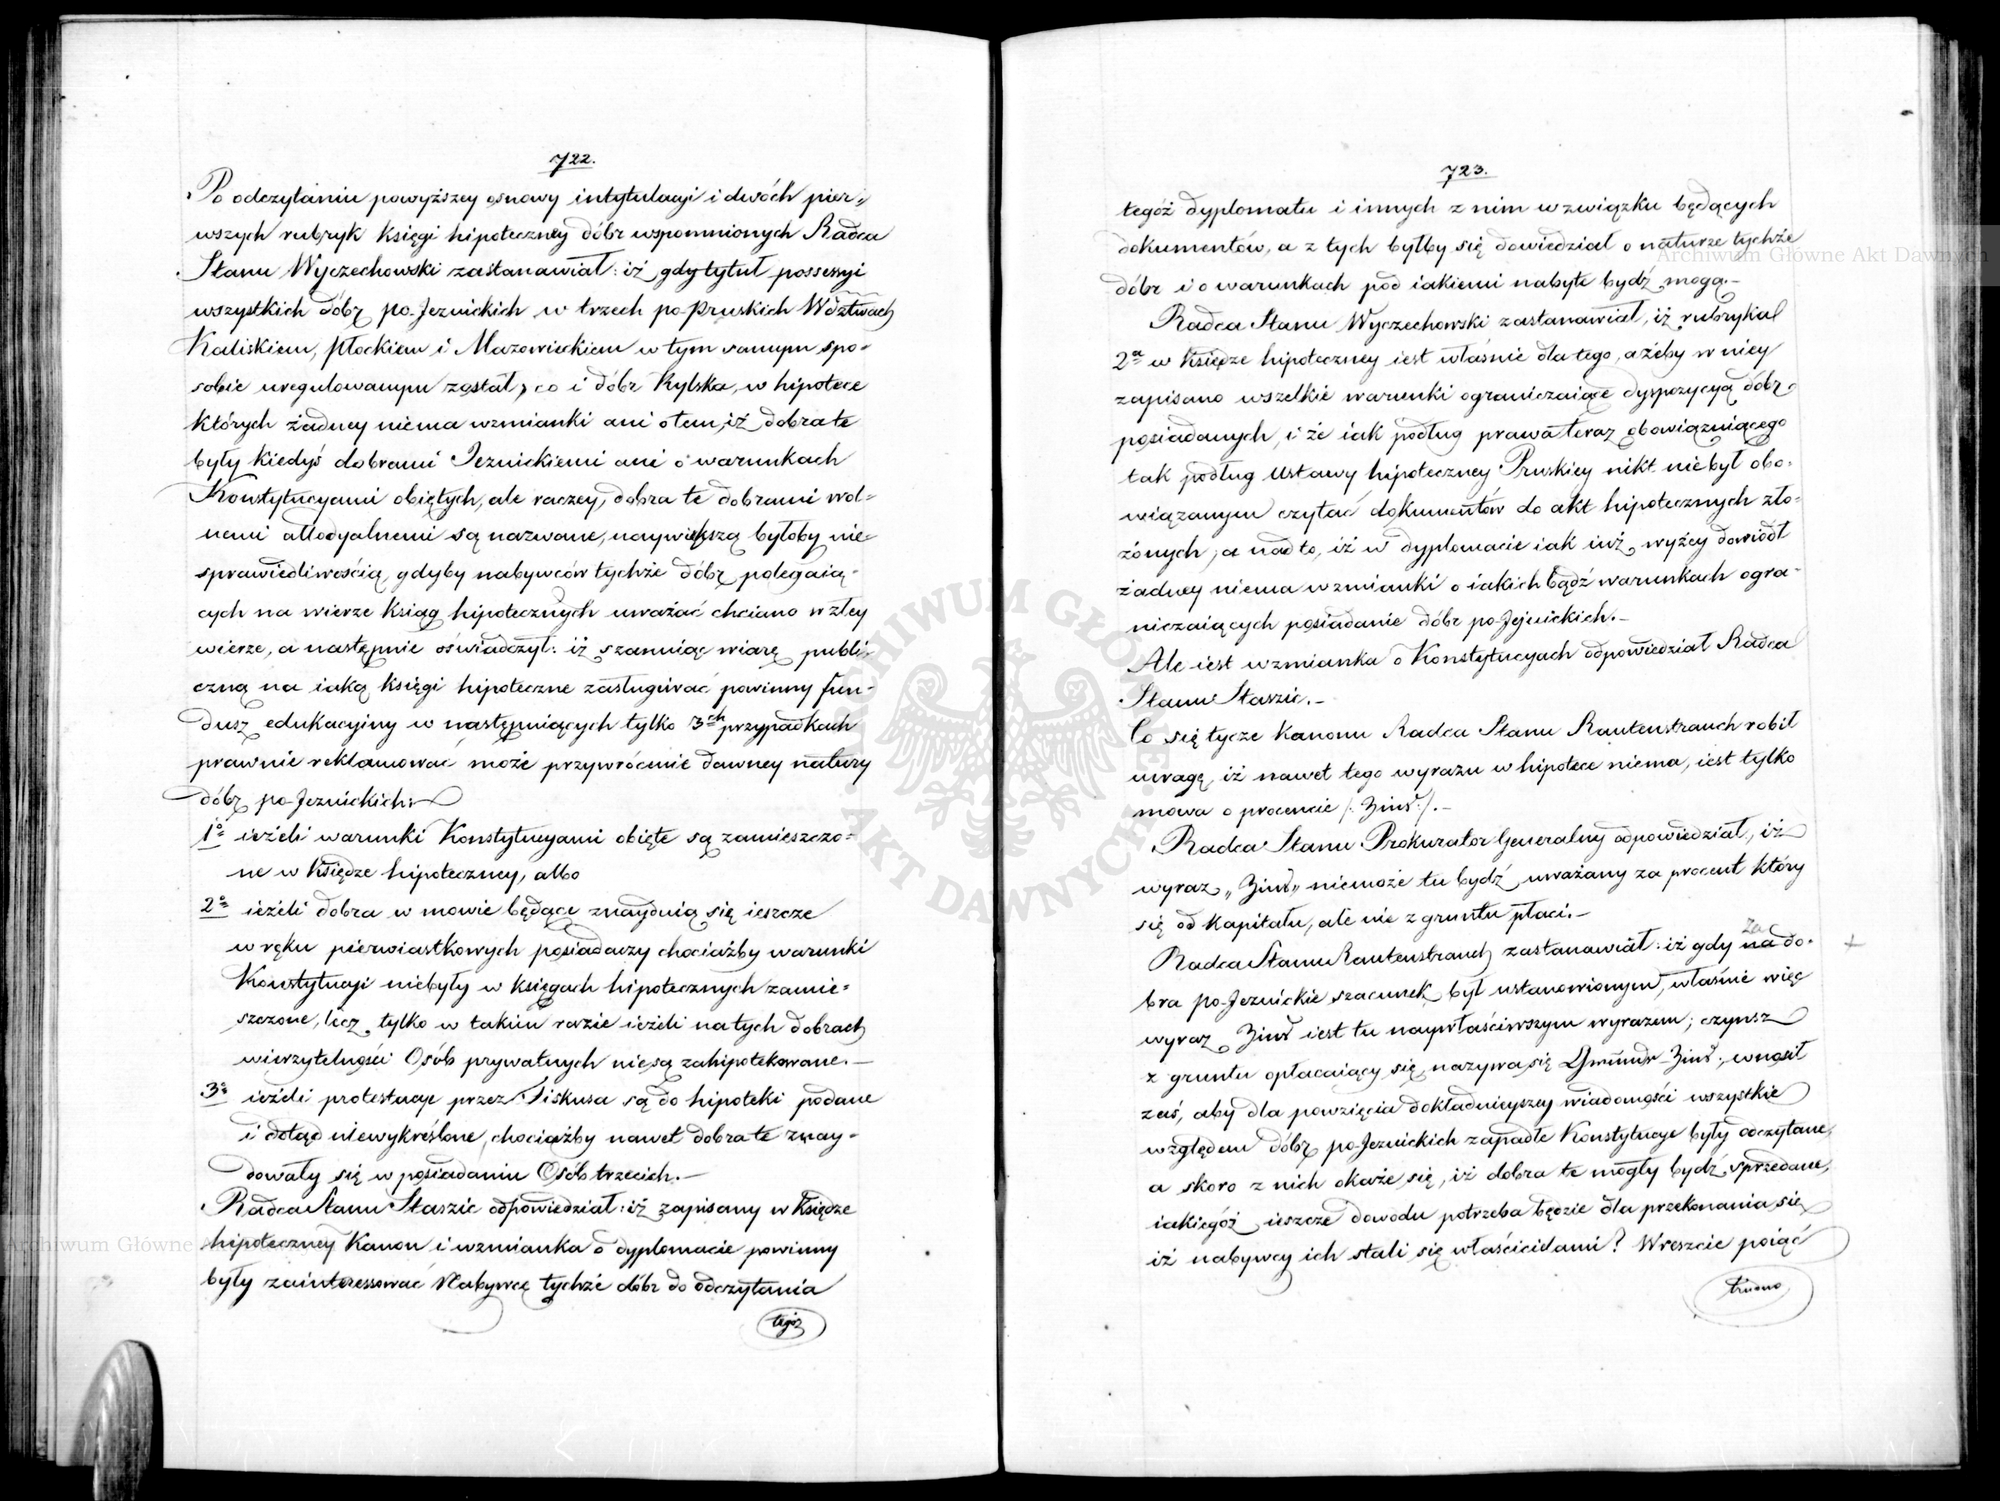 722.
Po odczytaniu powyższey osnowy intytulacyi i dwóch pier„
wszych rubryk księgi hipoteczney dóbr wspomnionych Radca
Stanu Wyczechowski zastanawiał: iż gdy tytuł possessyi
wszystkich dóbr po-Jezuickich w trzech po-Pruskich Wdztwach
Kaliskiem, Płockiem i Mazowieckiem w tym samym spo-
sobie uregulowanym został, co i dóbr Rylska, w hipotece
których żadney niema wzmianki ani o tem, iż dobra te
były kiedyś dobrami Jezuickiemi ani o warunkach
Konstytucyami obiętych, ale raczey, dobra te dobrami wol-
nemi allodyalnemi są nazwane, naywiększą byłoby nie-
sprawiedliwością, gdyby nabywców tychże dóbr polegaią-
cych na wierze ksiąg hipotecznych uważać chciano w złey
wierze, a następnie oświadczył: iż szanuiąc wiarę publi-
czną na iaką księgi hipoteczne zasługiwać powinny fun-
dusz edukacyiny w następuiących tylko 3ch przypadkach
prawnie reklamować może przywrócenie dawney natury
dóbr po-Jezuickich:
1o ieżeli warunki Konstytucyami obięte są zamieszczo-
ne w Księdze hipoteczney, albo
2o ieżeli dobra w mowie będące znayduią się ieszcze
w ręku pierwiastkowych posiadaczy chociażby warunki
Konstytucyi niebyły w księgach hipotecznych zamie-
szczone, lecz tylko w takim razie ieżeli na tych dobrach
wierzytelności Osób prywatnych nie są zahipotekowane.—
3o ieżeli protestacye przez Fiskusa są do hipoteki podane
i dotąd niewykreślone, chociażby nawet dobra te znay-
dowały się w posiadaniu Osób trzecich.—
Radca Stanu Staszic odpowiedział: iż zapisany w Księdze
hipoteczney Kanon i wzmianka o dyplomacie powinny
były zainteressować Nabywcę tychże dóbr do odczytania
tegoż
723.
tegoż dyplomatu i innych z nim w związku będących
dokumentów, a z tych byłby się dowiedział o naturze tychże
dóbr i o warunkach pod iakiemi nabyte bydź mogą.—
Radca Stanu Wyczechowski zastanawiał, iż rubryka
2a w Księdze hipoteczney iest właśnie dla tego, ażeby w niey
zapisano wszelkie warunki ograniczaiące dyspozycyą dóbr
posiadanych, i że iak podług prawa teraz obowiązuiącego
tak podług Ustawy hipoteczney Pruskiey nikt niebył obo-
wiązanym czytać dokumentów do akt hipotecznych zło-
żonych; a nad to, iż w dyplomacie iak iuż wyżey dowiódł
żadney niema wzmianki o iakich bądź warunkach ogra-
niczaiących posiadanie dóbr po-Jezuickich.—
Ale iest wzmianka o Konstytucyach odpowiedział Radca
Stanu Staszic.—
Co się tycze Kanonu Radca Stanu Rautenstrauch robił
uwagę, iż nawet tego wyrazu w hipotece niema, iest tylko
mowa o procencie /: Zins :/.—
Radca Stanu Prokurator Generalny odpowiedział, iż
wyraz „Zins„ niemoże tu bydź uważany za procent który
się od kapitału, ale nie z gruntu płaci.—
Radca Stanu Rautenstrauch zastanawiał: iż gdy na za do-
bra po-Jezuickie szacunek był ustanowionym, właśnie więc
wyraz Zins iest tu naywłaściwszym wyrazem; czynsz
z gruntu opłacaiący się nazywa się Grund-Zins; wnosił
zaś, aby dla powzięcia dokładnieyszey wiadomości wszystkie
względem dóbr po-Jezuickich zapadłe Konstytucye były odczytane,
a skoro z nich okaże się, iż dobra te mogły bydź sprzedane,
iakiegoż ieszcze dowodu potrzeba będzie dla przekonania się
iż nabywcy ich stali się właścicielami? Wreszcie poiąć
trudno
Archiwum Główne Akt Dawnych
ARCHIWUM GŁÓWNE AKT DAWNYCH